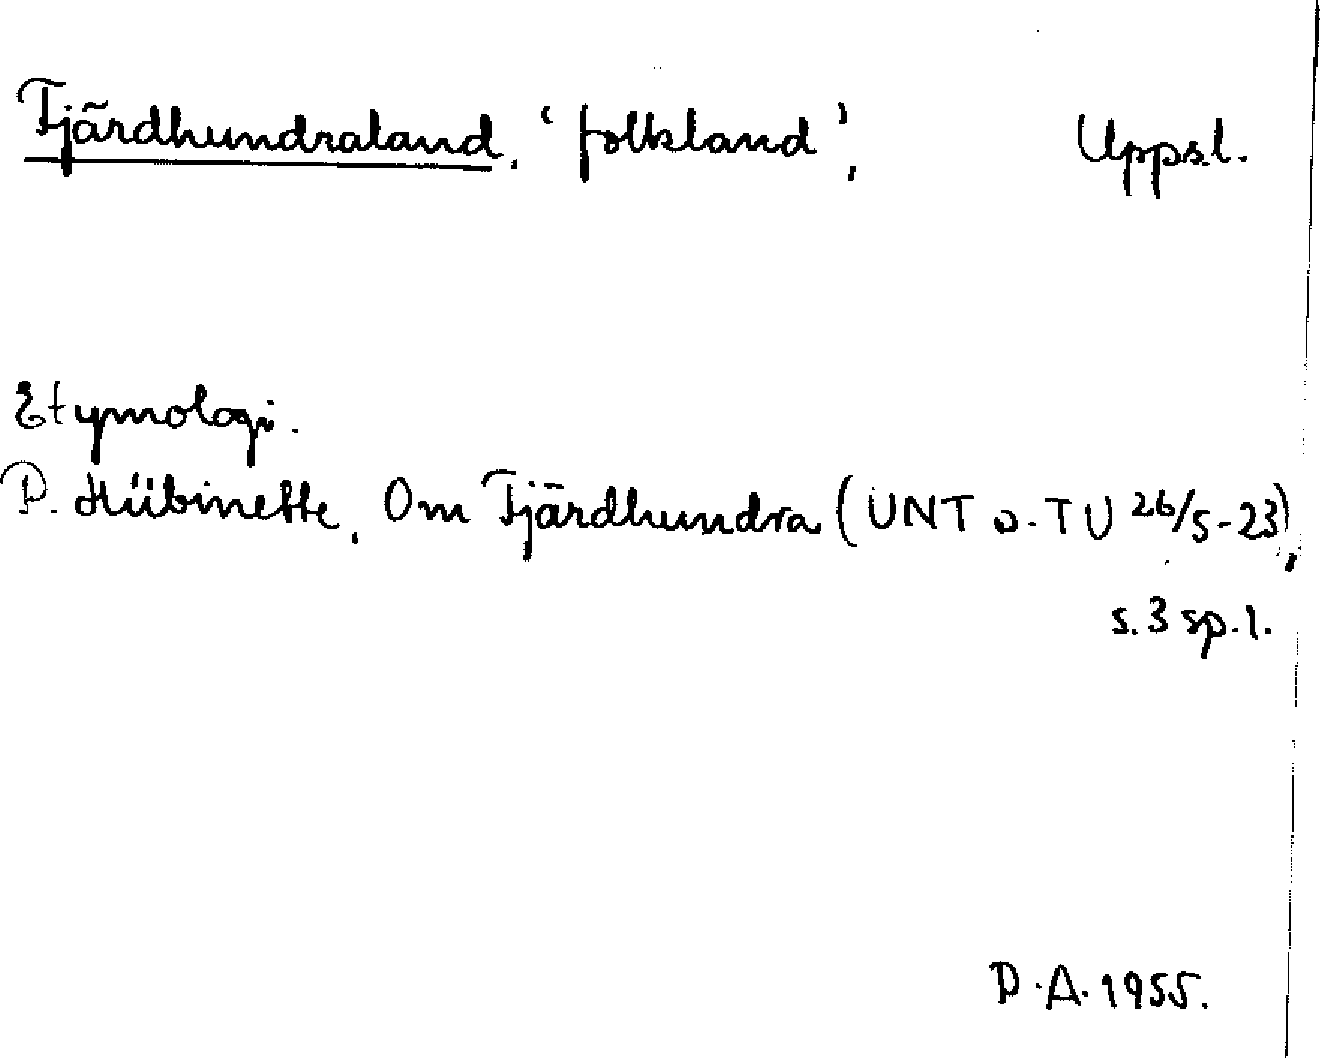 Fjärdhundraland, 'folkland', Uppsl.
Etymologi.
P. Hübinette, Om Fjärdhundra (UNT o. TU 26/5-23),
s. 3 sp. 1.
P. A. 1955.